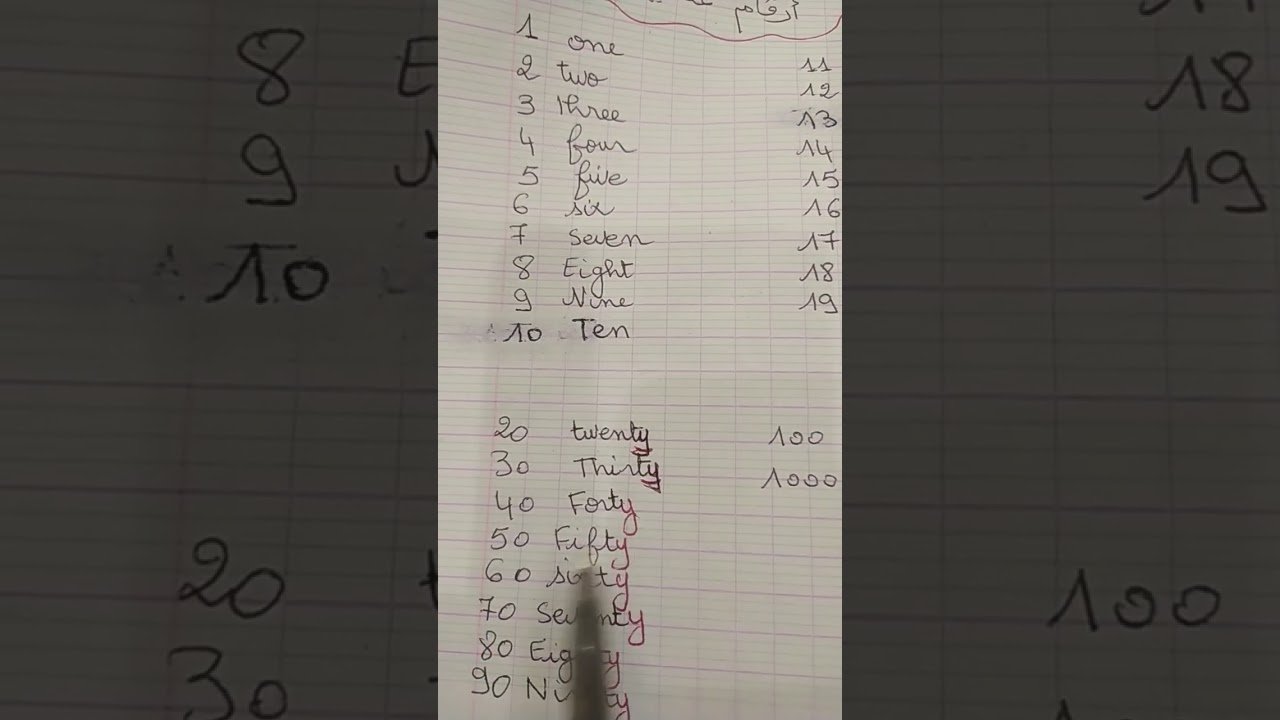 أرقام
1 one
2 two 11
3 three 12
4 four 13
5 five 14
6 six 15
7 Seven 16
8 Eight 17
9 Nine 18
10 Ten 19
20 twenty 100
30 Thirty 1000
40 Forty
50 Fifty
60 sixty
70 Seventy
80 Eighty
90 Ninety